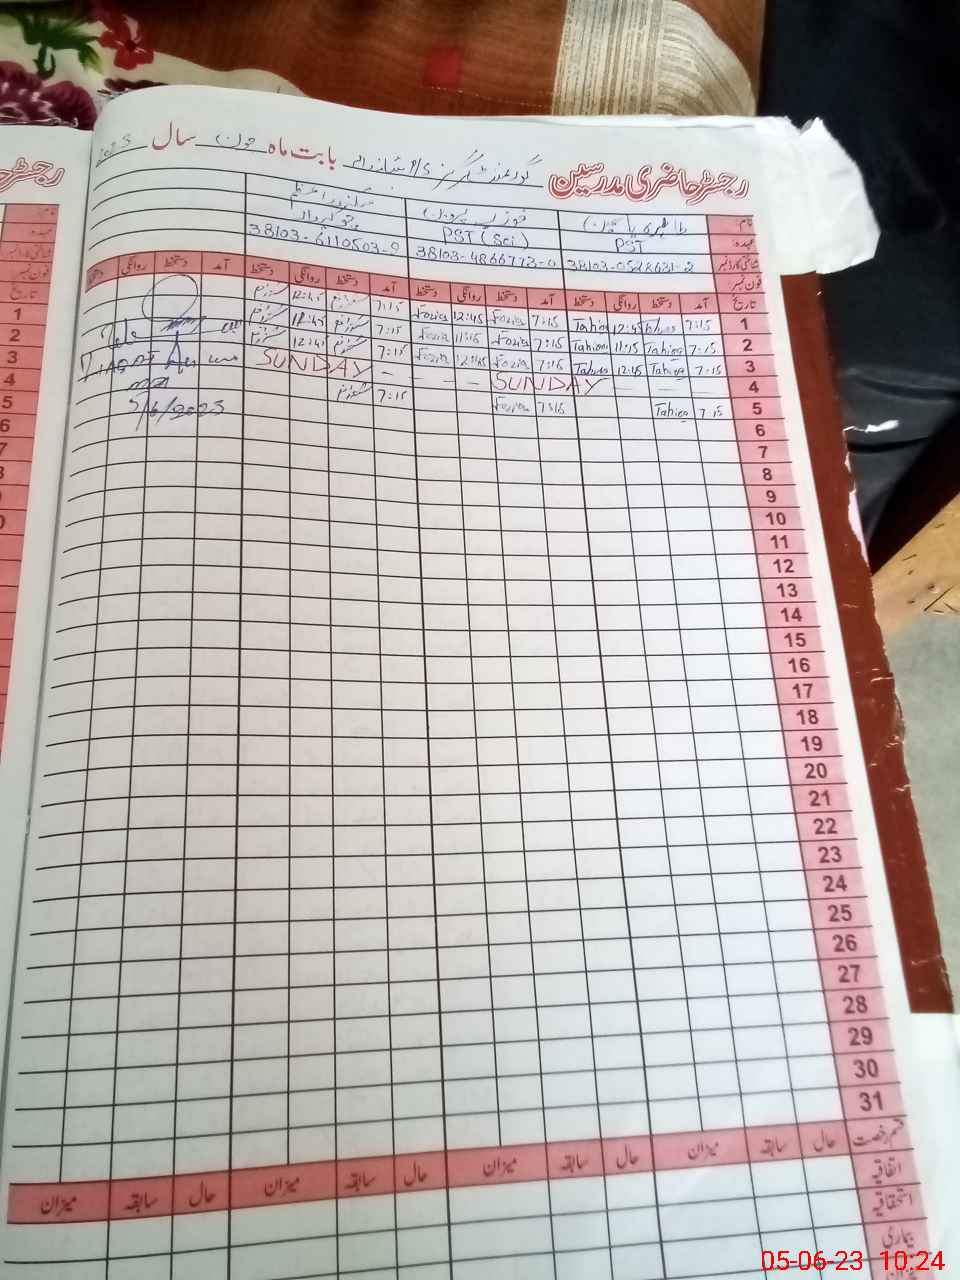 رجسٹر حاضری مدرسین گورنمنٹ گرلز P/S بابت ماہ جون سال 2023
نام: طاہرہ یاسمین فوزیہ پروین
عہدہ: PST PST (Sci) چوکیدار
شناختی کارڈ نمبر 38103-0528631-2 38103-4866773-0 38103-6110503-9
فون نمبر:
تاریخ آمد دستخط روانگی دستخط آمد دستخط روانگی دستخط آمد دستخط روانگی دستخط آمد دستخط روانگی دستخط
1 7:15 12:45 Tahira 7:15 Fozia 12:45 Fozia 7:15 12:45
2 7:15 Tahira 11:15 Tahira 7:15 Fozia 11:15 Fozia 7:15
3 7:15 Tahira 12:45 Tahira 7:15 Fozia 12:45 Fozia 7:15 12:45
4 — — SUNDAY — — — — SUNDAY
5 7:15 Tahira 7:15 Fozia 7:15
5/6/2023
6
7
8
9
10
11
12
13
14
15
16
17
18
19
20
21
22
23
24
25
26
27
28
29
30
31
قسم رخصت حال سابقہ میزان حال سابقہ میزان حال سابقہ میزان حال سابقہ میزان
اتفاقیہ
استحقاقیہ
بیماری
میزان
05-06-23 10:24